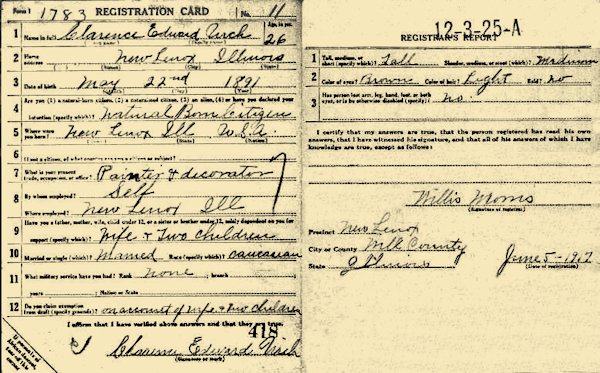 Form 1 1783 REGISTRATION CARD No. 11
1 Name in full Clarence Edward Age, in yrs. 26
2 Home address New Lenox Illinois
3 Date of birth May 22nd 1891
4 Are you (1) a natural-born citizen, (2) a naturalized citizen, (3) an alien, (4) or have you declared your intention (specify which)? Natural Born Citizen
5 Where were you born? New Lenox Ill U.S.A.
6 If not a citizen, of what country are you a citizen or subject?
7 What is your present trade, occupation, or office? Painter & decorator
8 By whom employed? Self
Where employed? New Lenox Ill
9 Have you a father, mother, wife, child under 12, or a sister or brother under 12, solely dependent on you for support (specify which)? Wife + Two children
10 Married or single (which)? Married Race (specify which)? Caucasian
11 What military service have you had? Rank none ; branch
years ; Nation or State
12 Do you claim exemption from draft (specify grounds)? on account of wife + two children
I affirm that I have verified above answers and that they are true.
418
Clarence Edward
(Signature or mark)
12-3-25-A
REGISTRAR'S REPORT
1 Tall, medium, or short (specify which)? Tall Slender, medium, or stout (which)? Medium
2 Color of eyes? Brown Color of hair? Light Bald? No
3 Has person lost arm, leg, hand, foot, or both eyes, or is he otherwise disabled (specify)? No.
I certify that my answers are true, that the person registered has read his own
answers, that I have witnessed his signature, and that all of his answers of which I have
knowledge are true, except as follows:
Willis Morris
(Signature of registrar)
Precinct New Lenox
City or County Will County
State Illinois June 5 - 1917
(Date of registration)